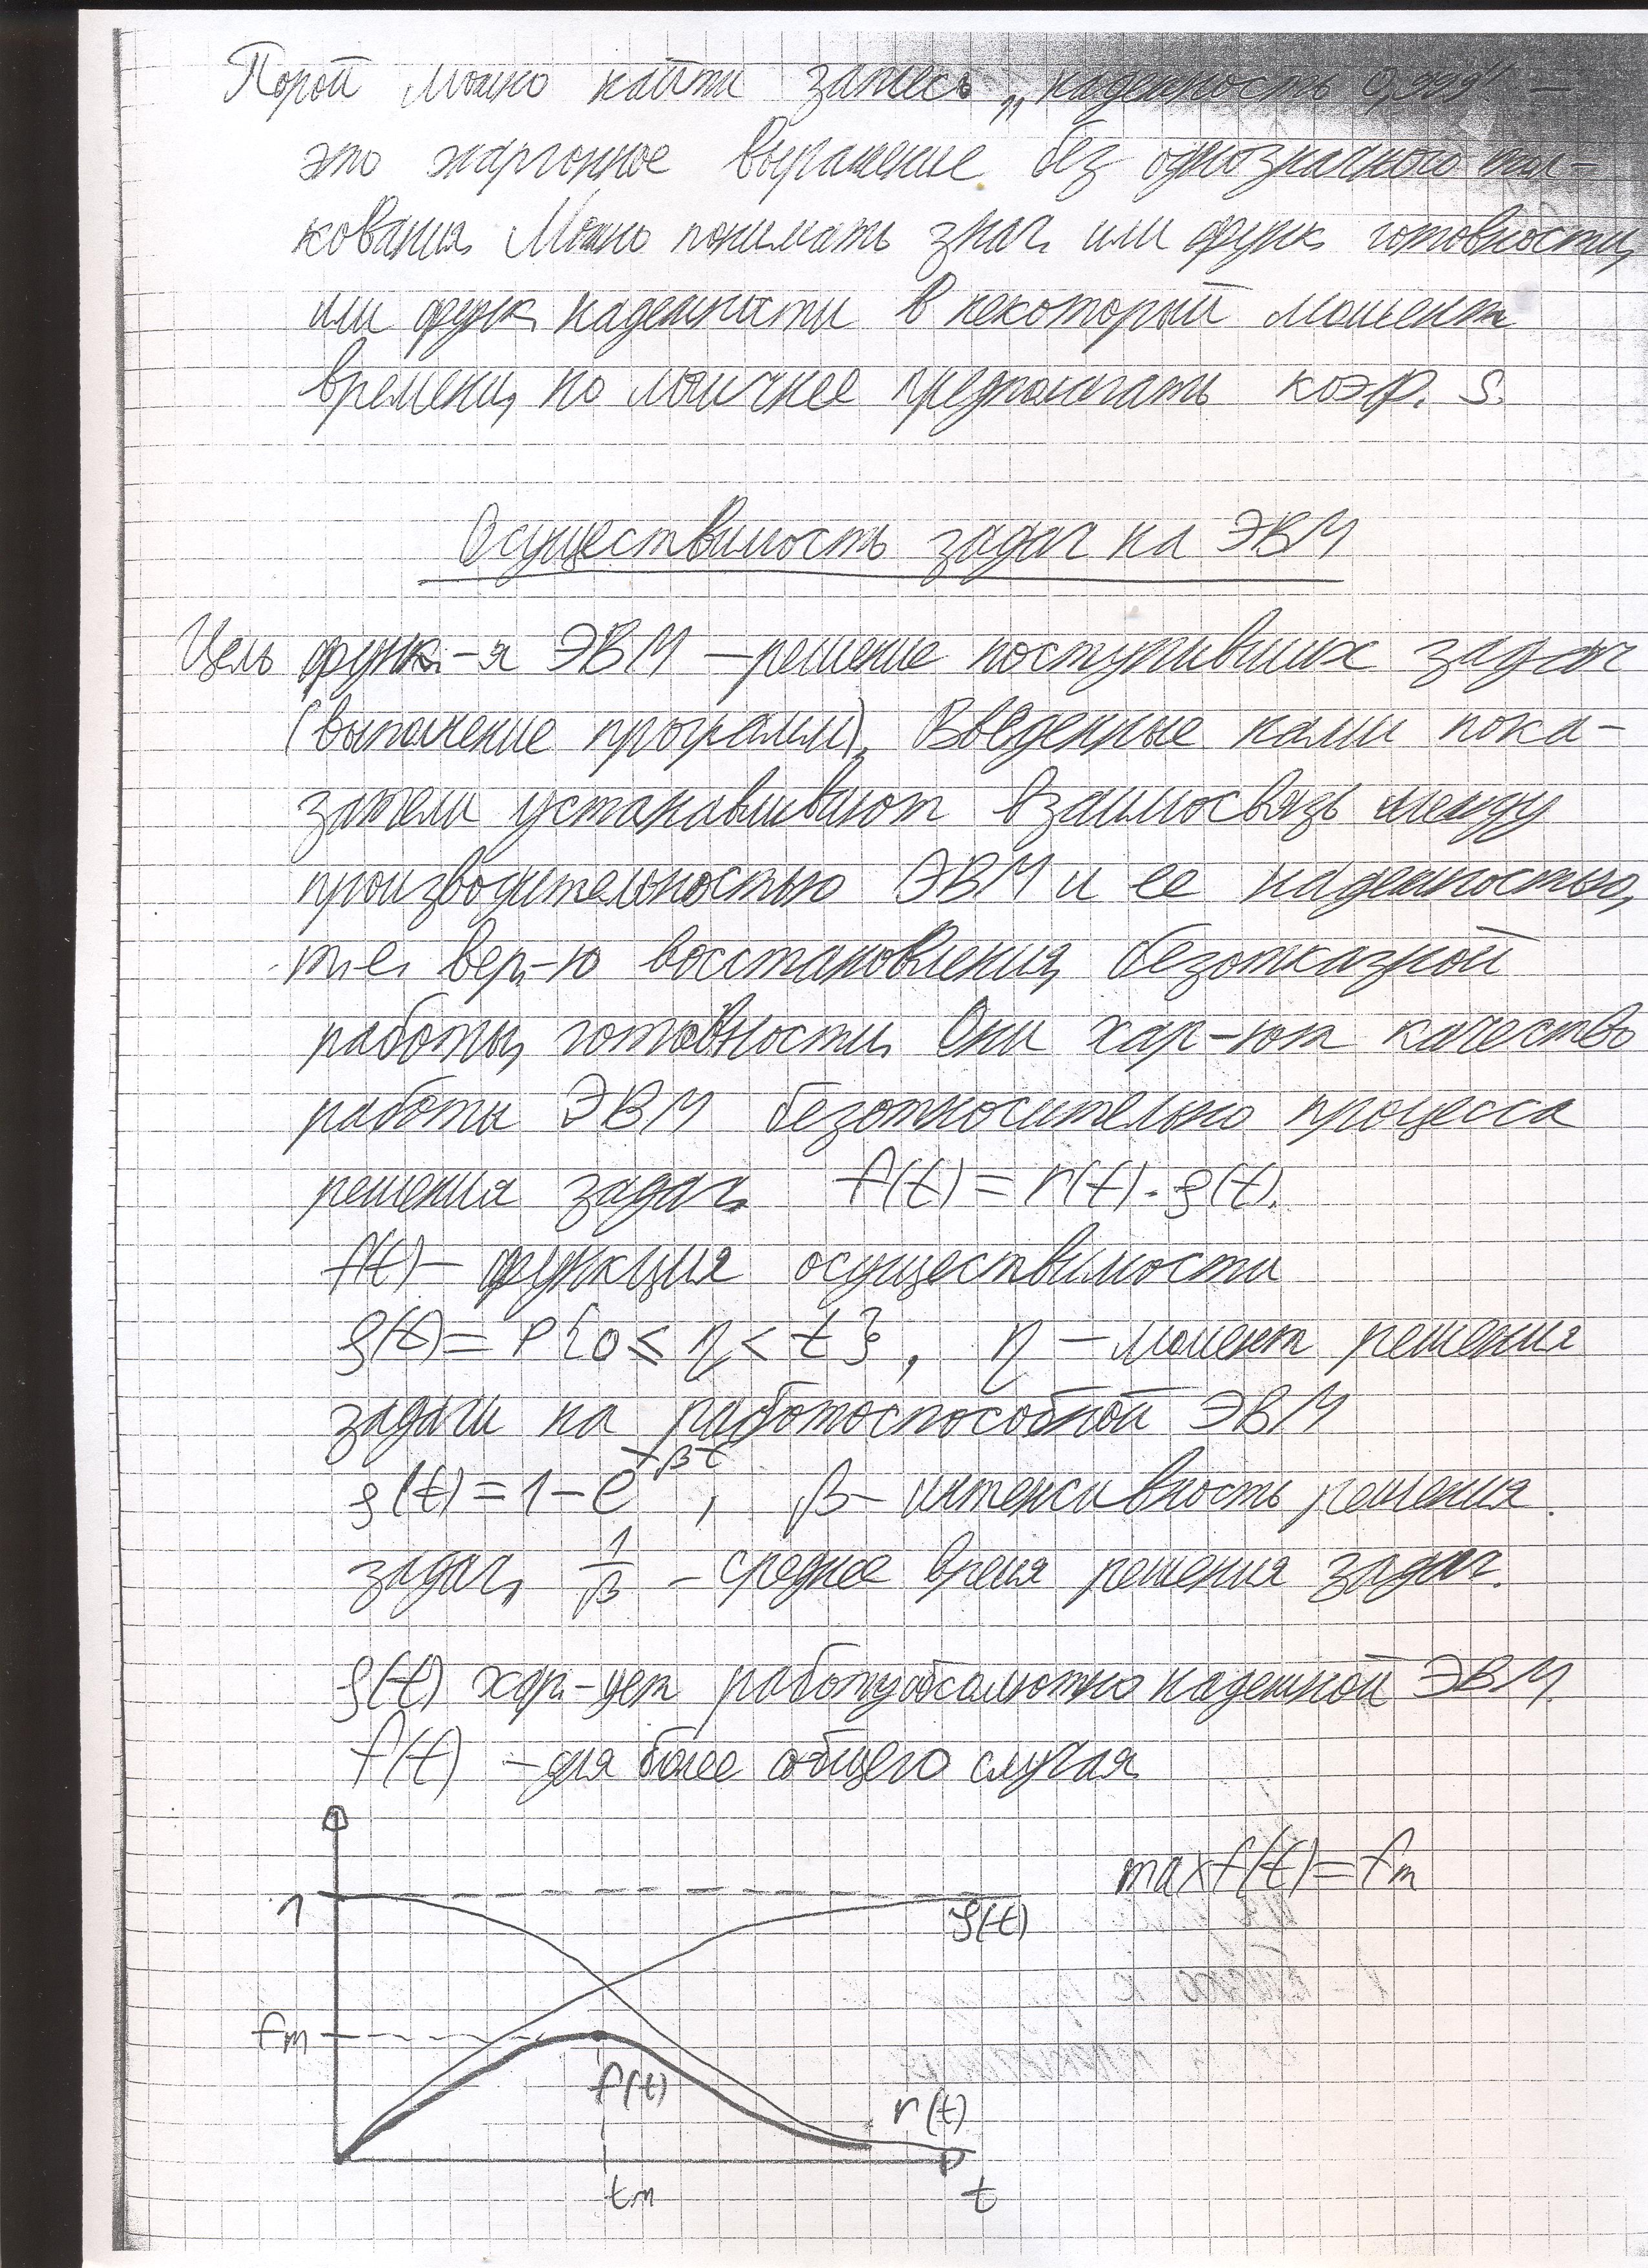 Порой можно найти запись „надежность 0,999" —
это жаргонное выражение без однозначного тол-
кования. Можно понимать знач. или функ. готовности,
или функ. надежности в некоторый момент
времени, но логичнее предполагать коэф. S.
Осуществимость задач на ЭВМ
Цель функ.-я ЭВМ — решение поступивших задач
(выполнение программ). Введенные нами пока-
затели устанавливают взаимосвязь между
производительностью ЭВМ и ее надежностью,
т.е. вер-ю восстановления, безотказной
работы, готовности. Они хар-ют качество
работы ЭВМ безотносительно процесса
решения задач. f(t) = r(t) · ρ(t).
f(t) — функция осуществимости
ρ(t) = P{0 ≤ η < t}, η — момент решения
задачи на работоспособной ЭВМ
ρ(t) = 1 − e^{−βt}, β — интенсивность решения
задач, 1/β — среднее время решения задач.
ρ(t) хар-ует работу абсолютно надежной ЭВМ.
f(t) — для более общего случая
max f(t) = fm
1
ρ(t)
fm
f(t)
r(t)
tm
t